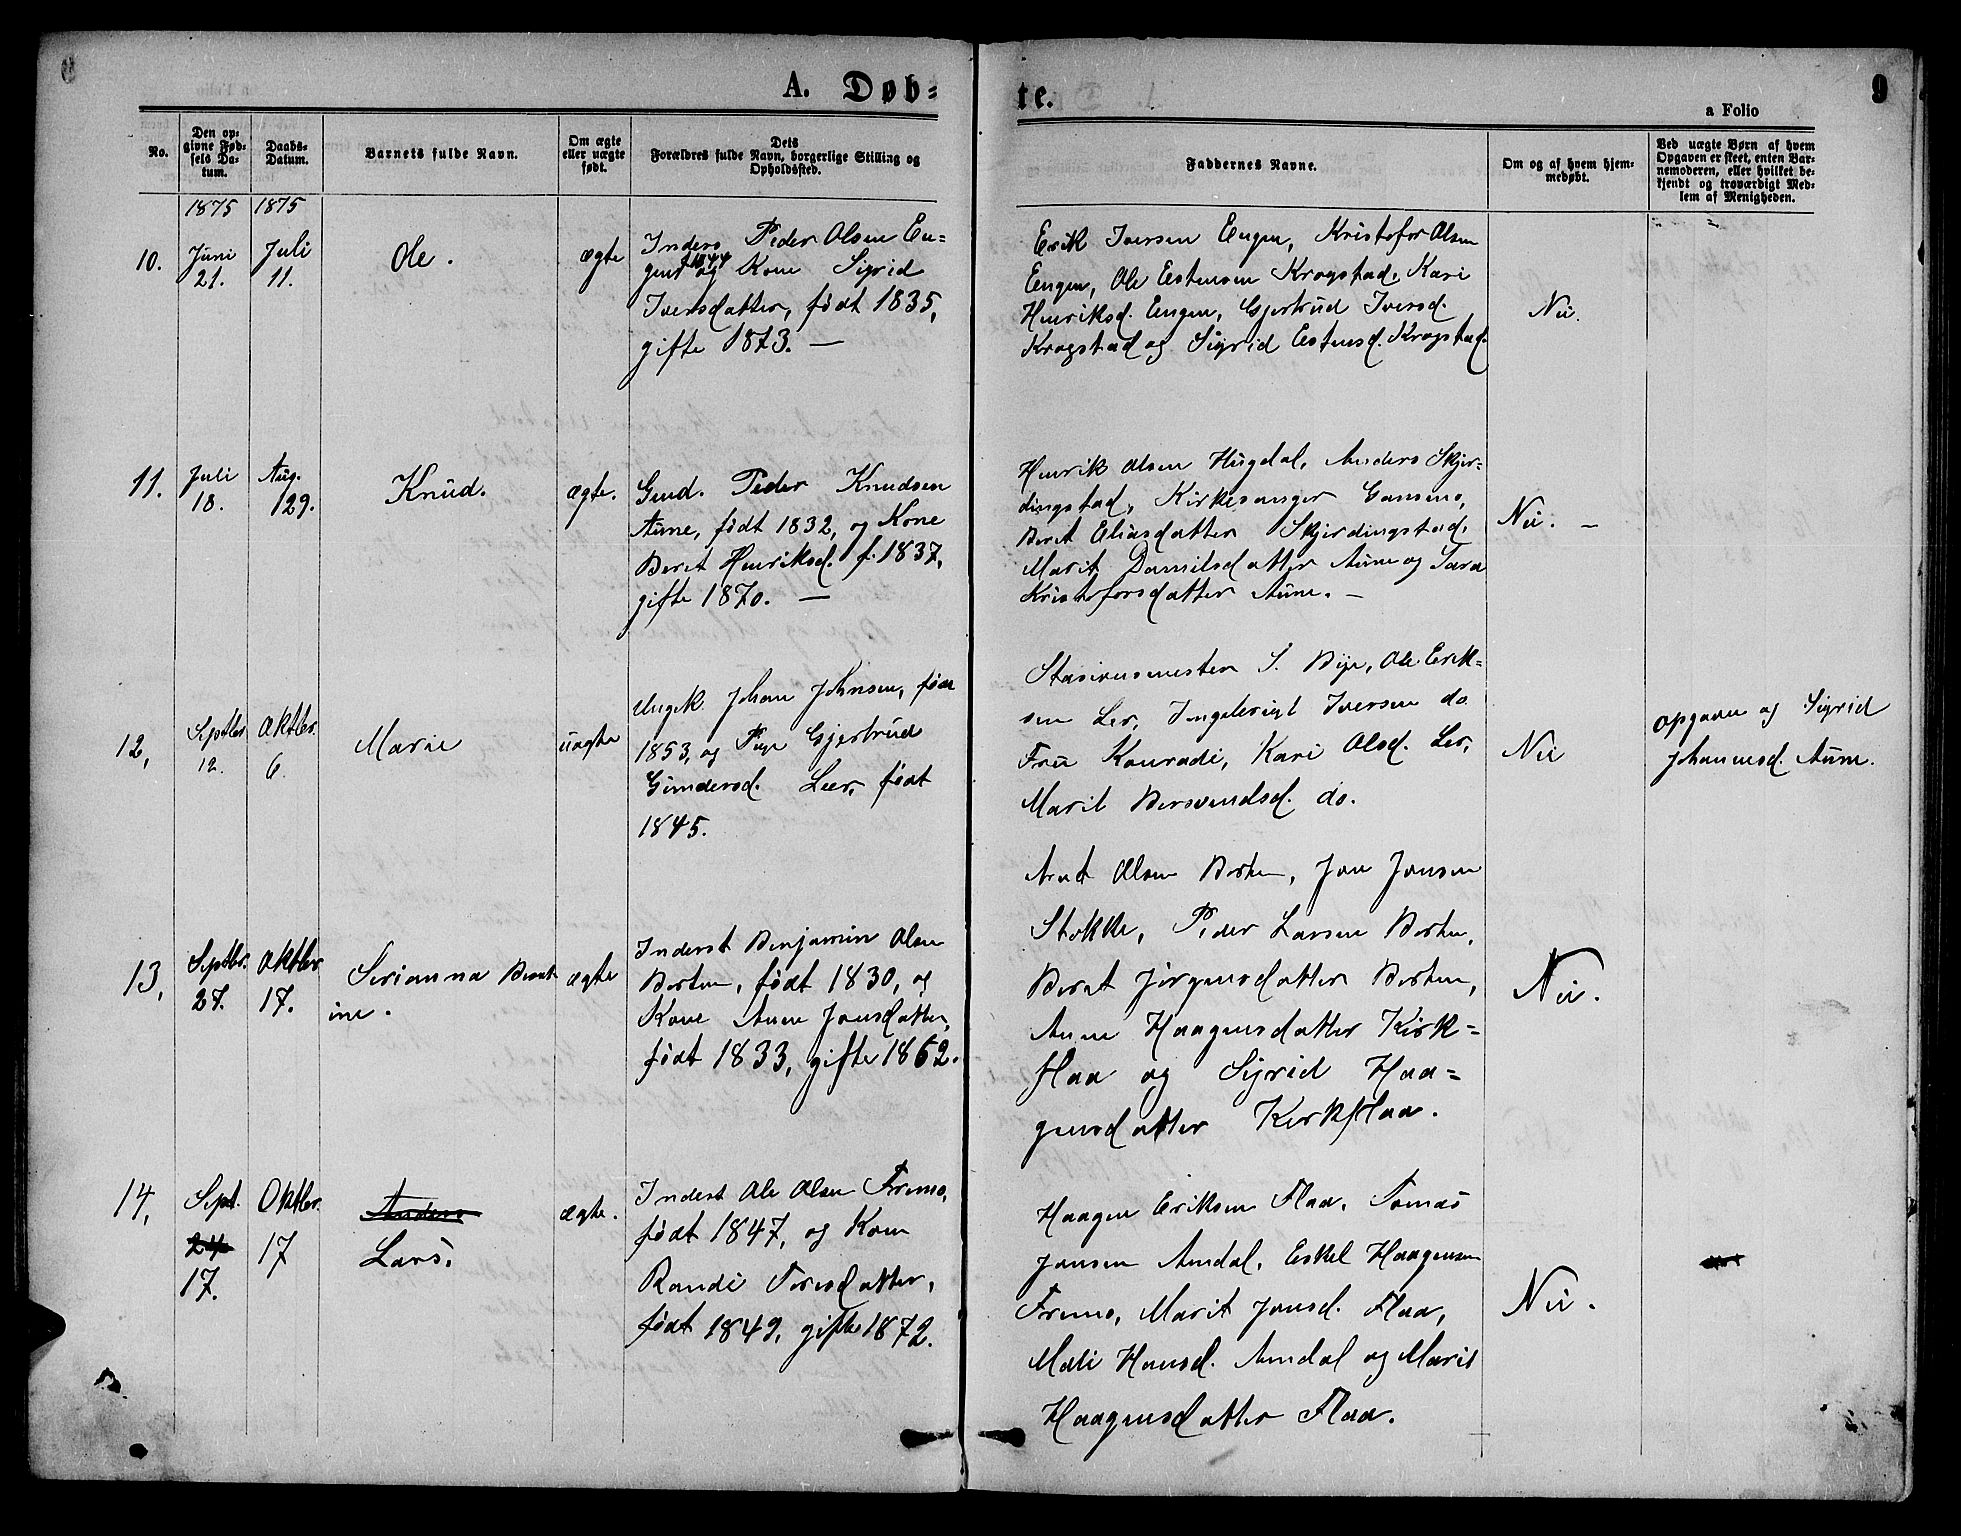 A. Døb=
te.
9
a Folio
No.
Den op=
givne Fød=
sels Da=
tum.
Daabs=
Datum.
Barnets fulde Navn.
Om ægte
eller uægte
født.
Dets
Forældres fulde Navn, borgerlige Stilling og
Opholdssted.
Faddernes Navne.
Om og af hvem hjem=
medøbt.
Ved uægte Børn af hvem
Opgaven er skeet, enten Bar=
nemoderen, eller hvilket be=
kjendt og troværdigt Med=
lem af Menigheden.
1875 1875
10.
Juni
21.
Juli
11.
Ole.
ægte
Inders Peder Olsen En=
gen f 1844 og Kone Sigrid
Iversdatter, født 1835,
gifte 1873. —
Erik Iversen Engen, Kristofor Olsen
Engen, Ole Estensen Krogstad, Kari
Henriksd. Engen, Gjertrud Iversd.
Krogstad og Sigrid Estensd. Krogstad.
Nei.
11.
Juli
18.
Aug.
29.
Knud.
ægte.
Gmd. Peder Knudsen
Aune, født 1832, og Kone
Beret Henriksd. f. 1837,
gifte 1870. —
Henrik Olsen Hugdal, Anders Skjer=
dingstad, Kirkesanger Gansmo,
Beret Eliasdatter Skjerdingstad,
Marit Danilsdatter Aune og Sara
Kristofforsdatter Aune. —
Nei. —
12,
Septbr.
12.
Oktbr.
6.
Marie
uægte
Ungk. Johan Johnsen, født
1853, og Pige Gjertrud
Gundersd. Leer, født
1845.
Stasionsmester S. Bye, Ole Erik=
sen Ler, Ingebrigt Iversen do.
Fru Konradi, Kari Olsd. Ler,
Marit Bersvendsd. do.
Nei
opgaven og Sigrid
Johannesd. Aune.
13,
Septbr.
27.
Oktbr
17.
Serianna Berent
ine.
ægte
Inderst Benjamin Olsen
Borten, født 1830, og
Kone Anne Jonsdatter,
født 1833, gifte 1862.
Arnt Olsen Borten, Jon Jonsen
Stokke, Peder Larsen Borten,
Beret Jørgensdatter Borten,
Anne Haagensdatter Kirk=
flaa og Sigrid Haa=
gensdatter Kirkflaa.
Nei.
14,
Sept.
24
17.
Oktbr.
17
Anders
Lars.
ægte.
Inderst Ole Olsen Fremo,
født 1847, og Kone
Randi Toresdatter,
født 1849, gifte 1872.
Haagen Eriksen Flaa, Tomas
Jonsen Amdal, Eskel Haagensen
Fremo, Marit Jonsd. Flaa,
Mali Hansd. Amdal og Marit
Haagensdatter Flaa.
Nei.